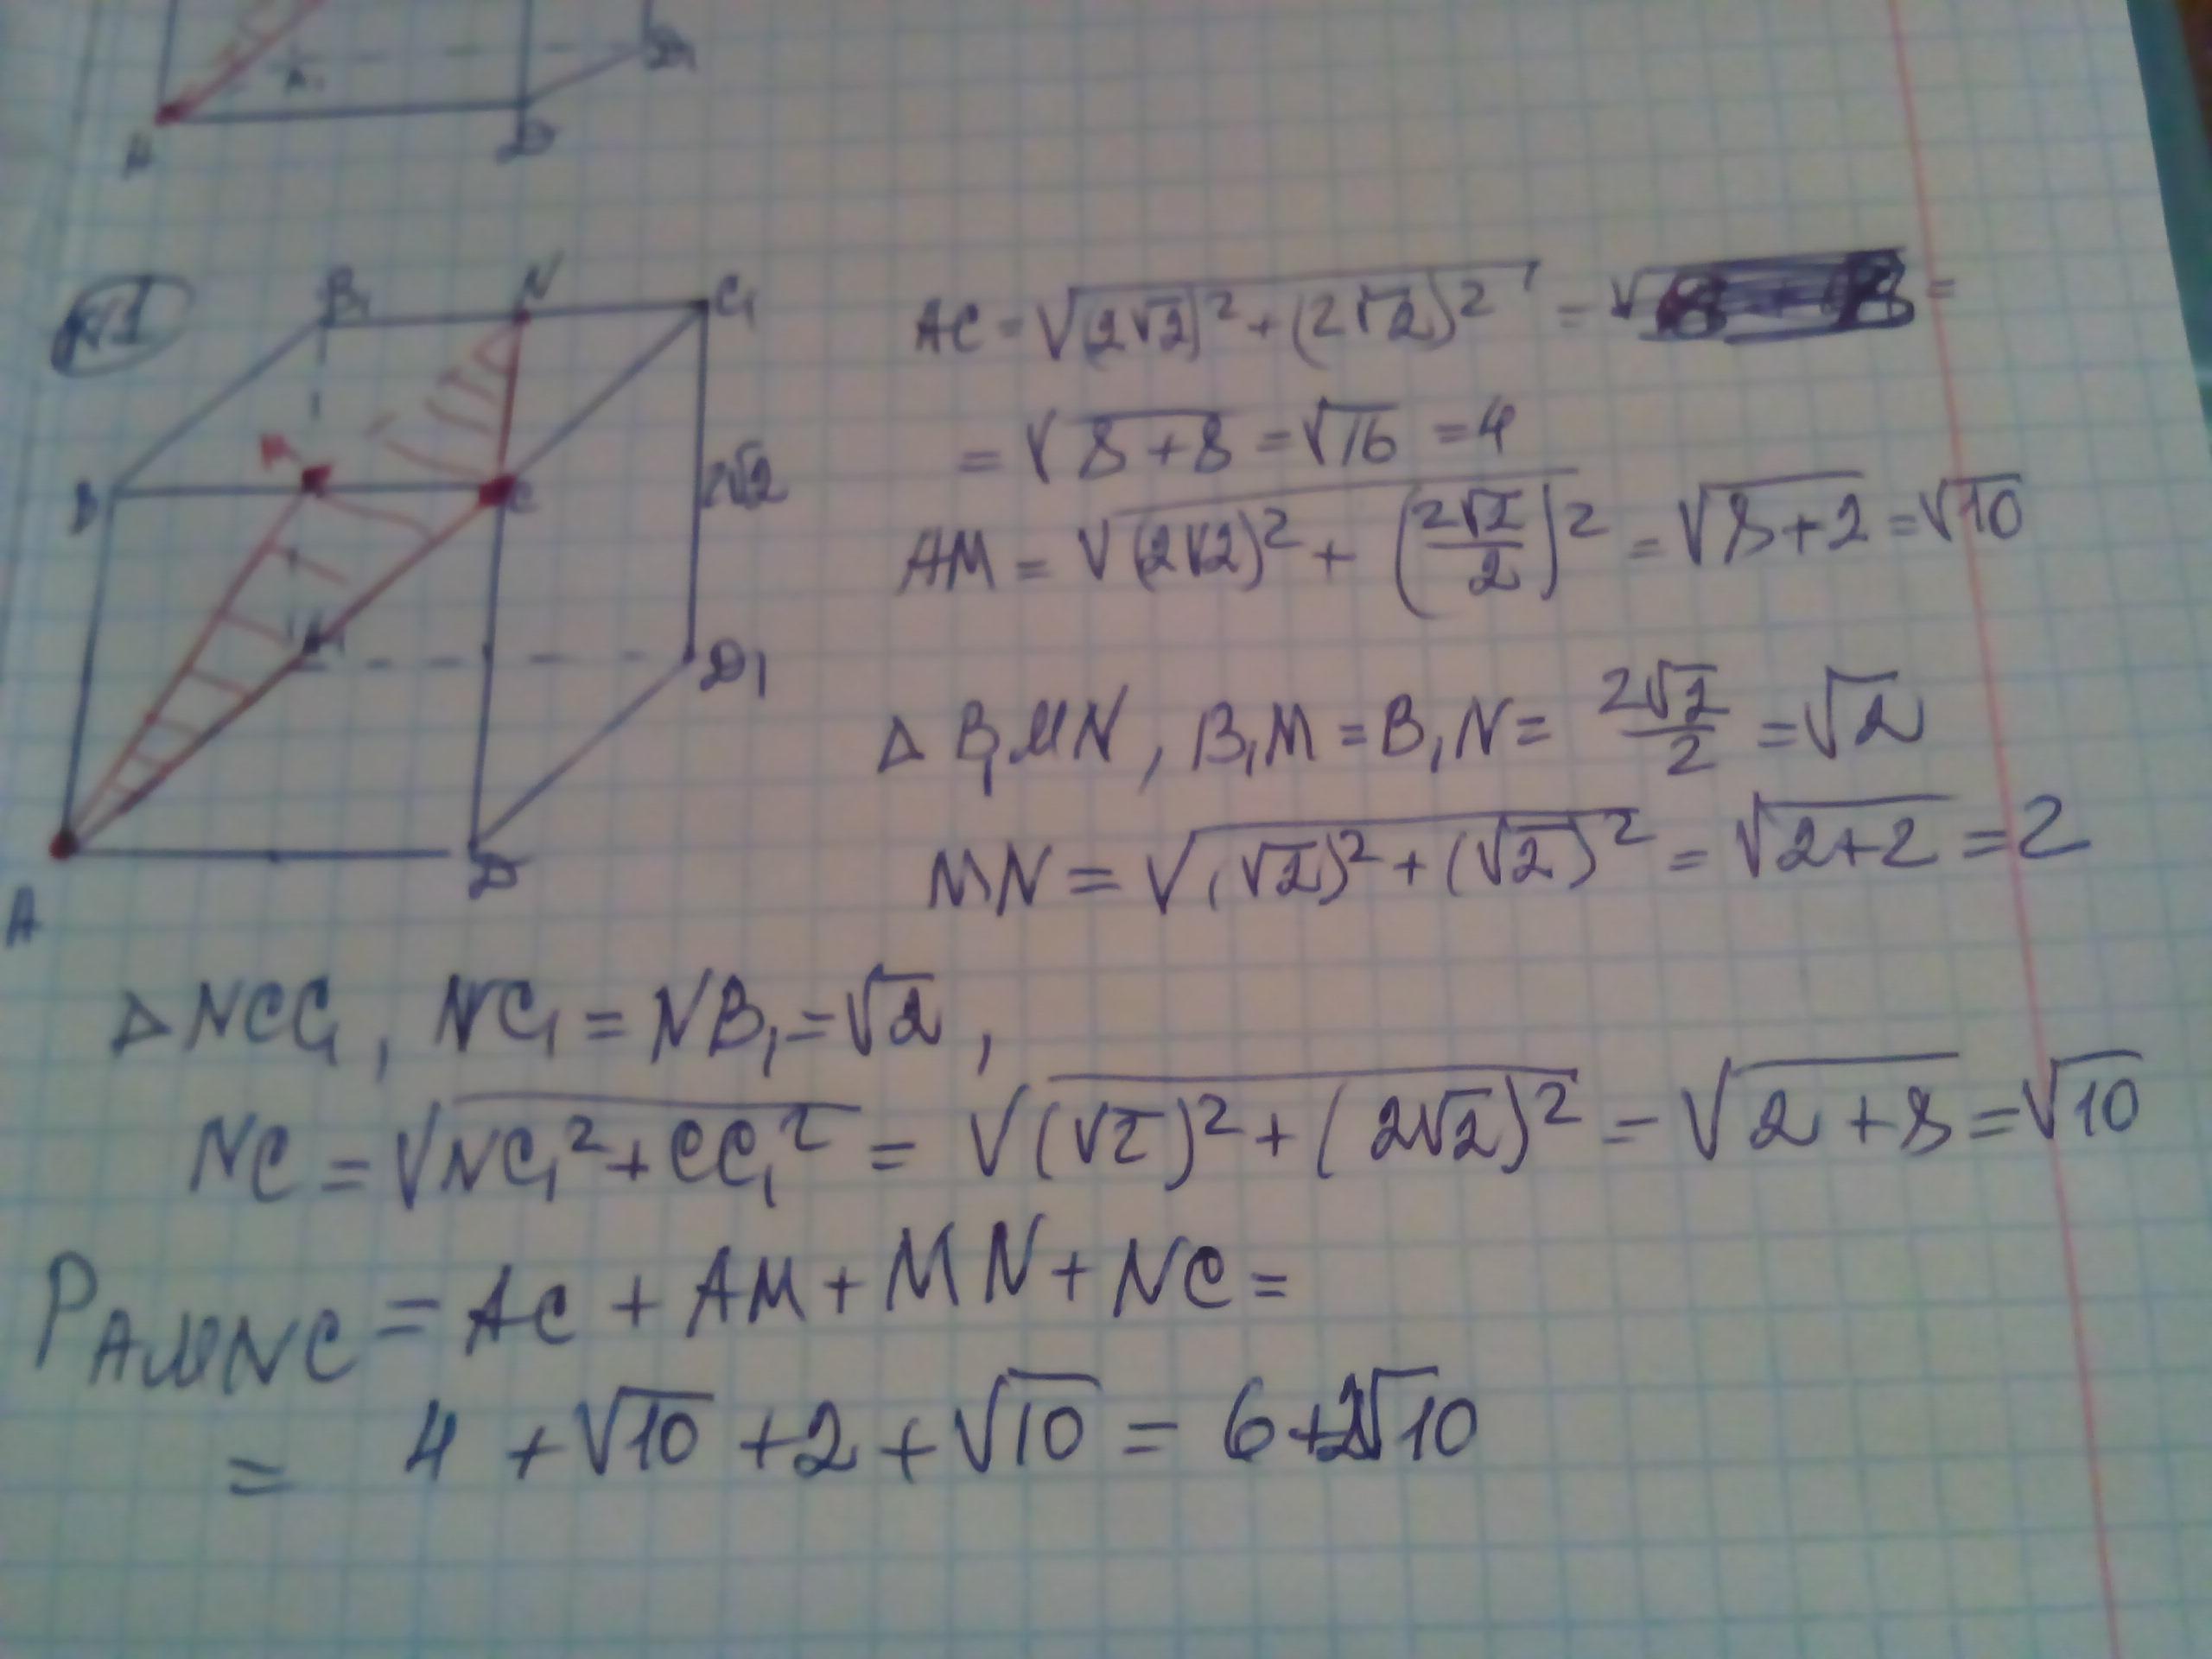 A₁
D₁
A
D
√1
B₁
N
C₁
B
M
C
2√2
A₁
D₁
A
D
AC = √((2√2)² + (2√2)²) = √ =
= √(8+8) = √16 = 4
AM = √((2√2)² + (2√2/2)²) = √(8+2) = √10
Δ B₁MN, B₁M = B₁N = 2√2/2 = √2
MN = √((√2)² + (√2)²) = √(2+2) = 2
Δ NCC₁, NC₁ = NB₁ = √2,
NC = √(NC₁² + CC₁²) = √((√2)² + (2√2)²) = √(2+8) = √10
P AMNC = AC + AM + MN + NC =
= 4 + √10 + 2 + √10 = 6+2√10